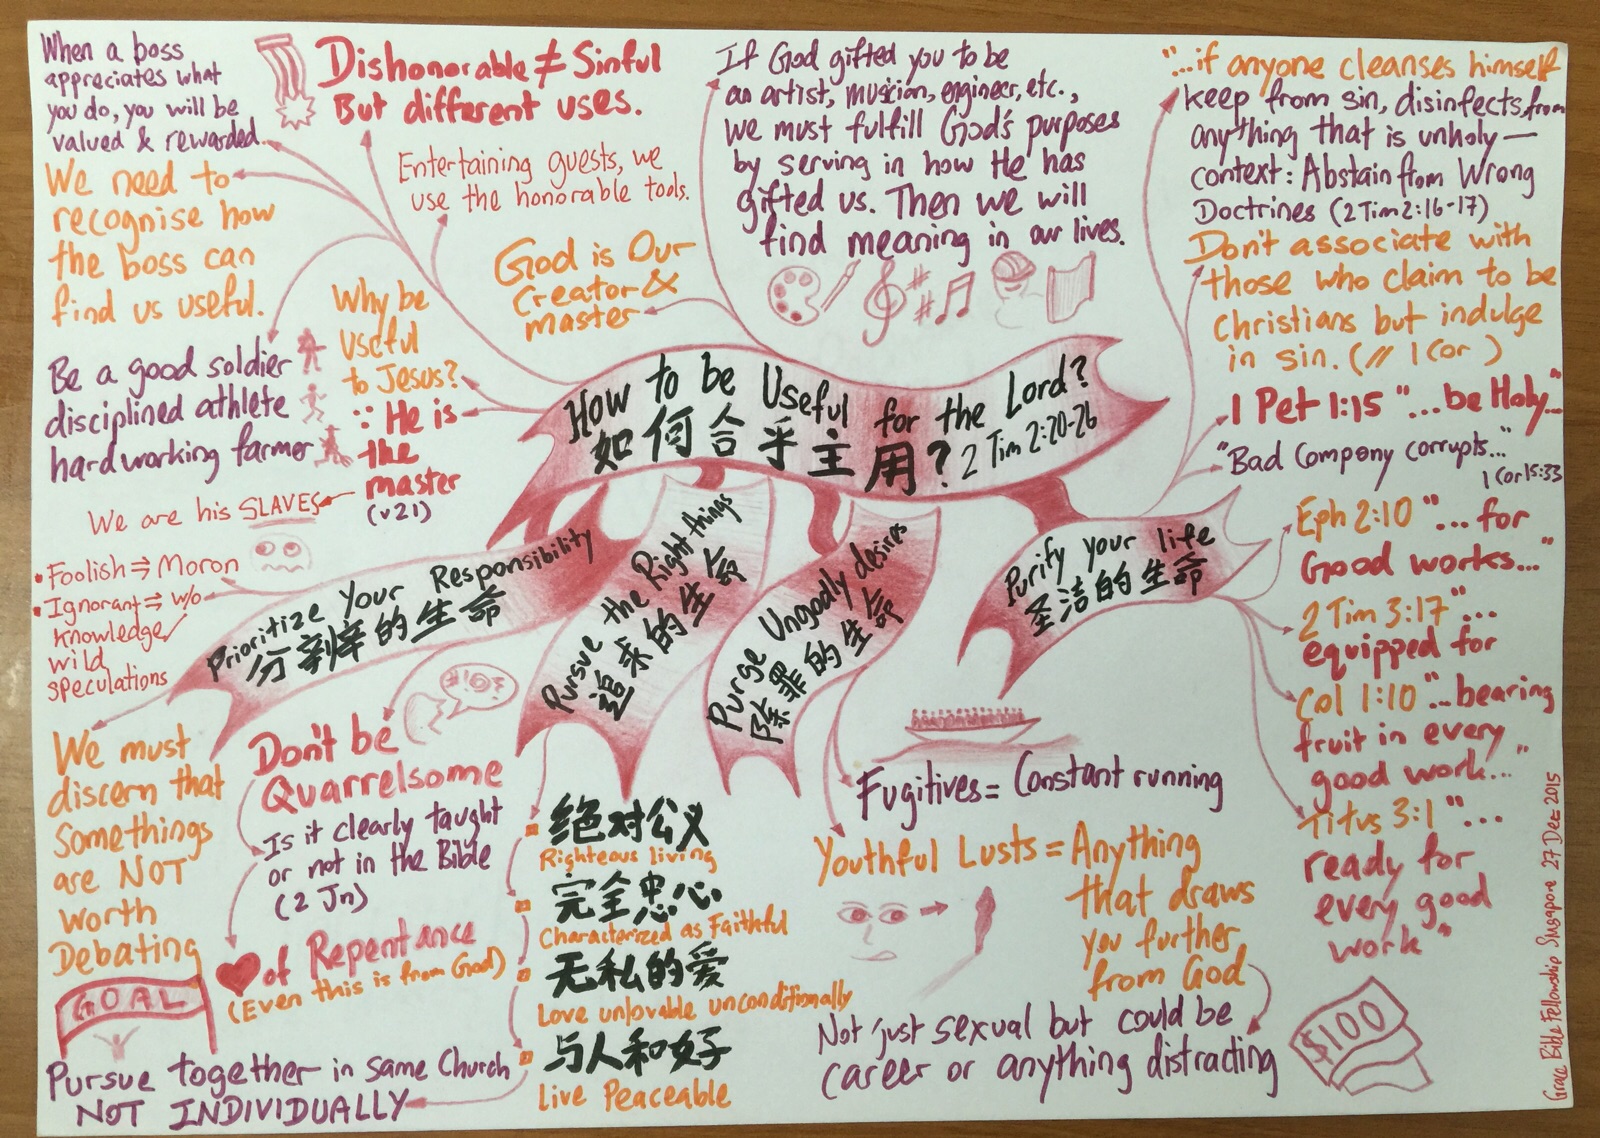 When a boss
appreciates what
you do, you will be
valued & rewarded.
We need to
recognise how
the boss can
find us useful.
Be a good soldier
disciplined athlete
hardworking farmer
Dishonorable ≠ Sinful
But different uses.
Entertaining guests, we
use the honorable tools.
God is Our
Creator &
master
Why be
Useful
to Jesus?
∵ He is
the
master
(v21)
We are his SLAVES
If God gifted you to be
an artist, musician, engineer, etc.,
we must fulfill God's purposes
by serving in how He has
gifted us. Then we will
find meaning in our lives.
"...if anyone cleanses himself
keep from sin, disinfects, from
anything that is unholy —
context: Abstain from Wrong
Doctrines (2 Tim 2:16-17)
Don't associate with
those who claim to be
Christians but indulge
in sin. (// 1 Cor )
1 Pet 1:15 "...be Holy..."
"Bad Company corrupts..."
1 Cor 15:33
How to be Useful for the Lord?
如何合乎主用? 2 Tim 2:20-26
Prioritize Your Responsibility
分辨的生命
Pursue the Right things
追求的生命
Purge Ungodly desires
除罪的生命
Purify your life
圣洁的生命
• Foolish ⇒ Moron
• Ignorant ⇒ w/o
knowledge/
wild
speculations
We must
discern that
Somethings
are NOT
worth
Debating
Don't be
Quarrelsome
#!@!
Is it clearly taught
or not in the Bible
(2 Jn)
of Repentance
(Even this is from God)
GOAL
Pursue together in same Church
NOT INDIVIDUALLY
绝对公义
Righteous living
完全忠心
Characterized as Faithful
无私的爱
Love unlovable unconditionally
与人和好
Live Peaceable
Fugitives = Constant running
Youthful Lusts = Anything
that draws
you further
from God
Not just sexual but could be
career or anything distracting
$100
Eph 2:10 "... for
Good works..."
2 Tim 3:17 "...
equipped for
Col 1:10 "...bearing
fruit in every
good work..."
Titus 3:1 "...
ready for
every good
work"
Grace Bible Fellowship Singapore 27 Dec 2015